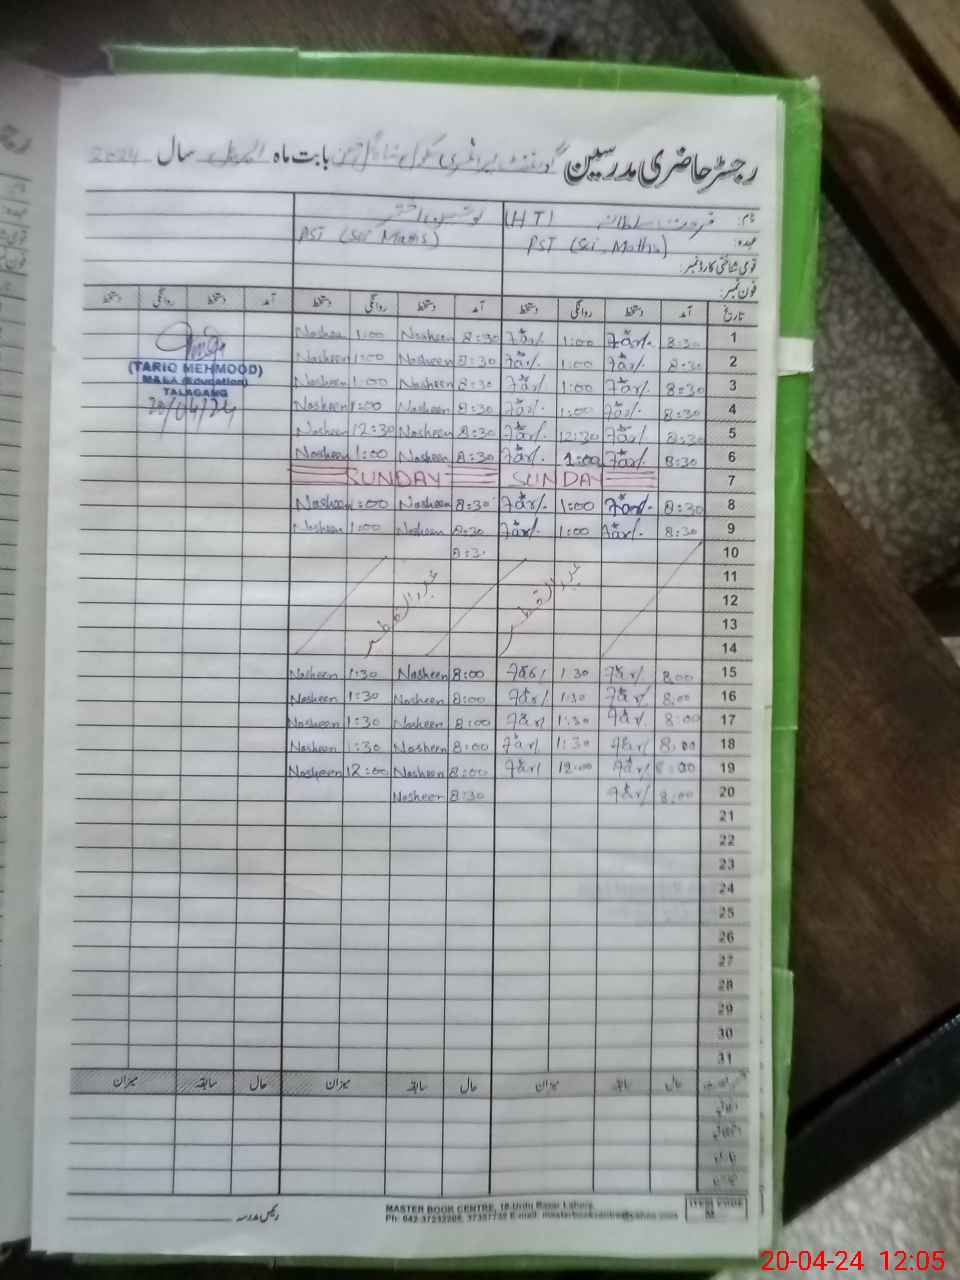 رجسٹر حاضری مدرسین گورنمنٹ پرائمری سکول بابت ماہ اپریل سال 2024
نام: (HT) نوشین اختر
عہدہ: PST (Sci-Maths) PST (Sci Maths)
قومی شناختی کارڈ نمبر:
فون نمبر:
تاریخ آمد دستخط روانگی دستخط آمد دستخط روانگی دستخط آمد دستخط روانگی دستخط
1 8:30 1:00 8:30 Nasheen 1:00 Nasheen
2 8:30 1:00 8:30 Nasheen 1:00 Nasheen
3 8:30 1:00 8:30 Nasheen 1:00 Nasheen
4 8:30 1:00 8:30 Nasheen 1:00 Nasheen
5 8:30 12:30 8:30 Nasheen 12:30 Nasheen
6 8:30 1:00 8:30 Nasheen 1:00 Nasheen
7 SUNDAY SUNDAY
8 8:30 1:00 8:30 Nasheen 1:00 Nasheen
9 8:30 1:00 8:30 Nasheen 1:00 Nasheen
10 8:30
11
12 عید الفطر عید الفطر
13
14
15 8:00 1:30 8:00 Nasheen 1:30 Nasheen
16 8:00 1:30 8:00 Nasheen 1:30 Nasheen
17 8:00 1:30 8:00 Nasheen 1:30 Nasheen
18 8:00 1:30 8:00 Nasheen 1:30 Nasheen
19 8:00 12:00 8:00 Nasheen 12:00 Nasheen
20 8:00 8:30 Nasheen
21
22
23
24
25
26
27
28
29
30
31
(TARIQ MEHMOOD)
M&EA (Education)
TALAGANG
20/04/24
حال سابقہ میزان حال سابقہ میزان حال سابقہ میزان
رئیس مدرسہ
MASTER BOOK CENTRE, 18-Urdu Bazar Lahore.
20-04-24 12:05